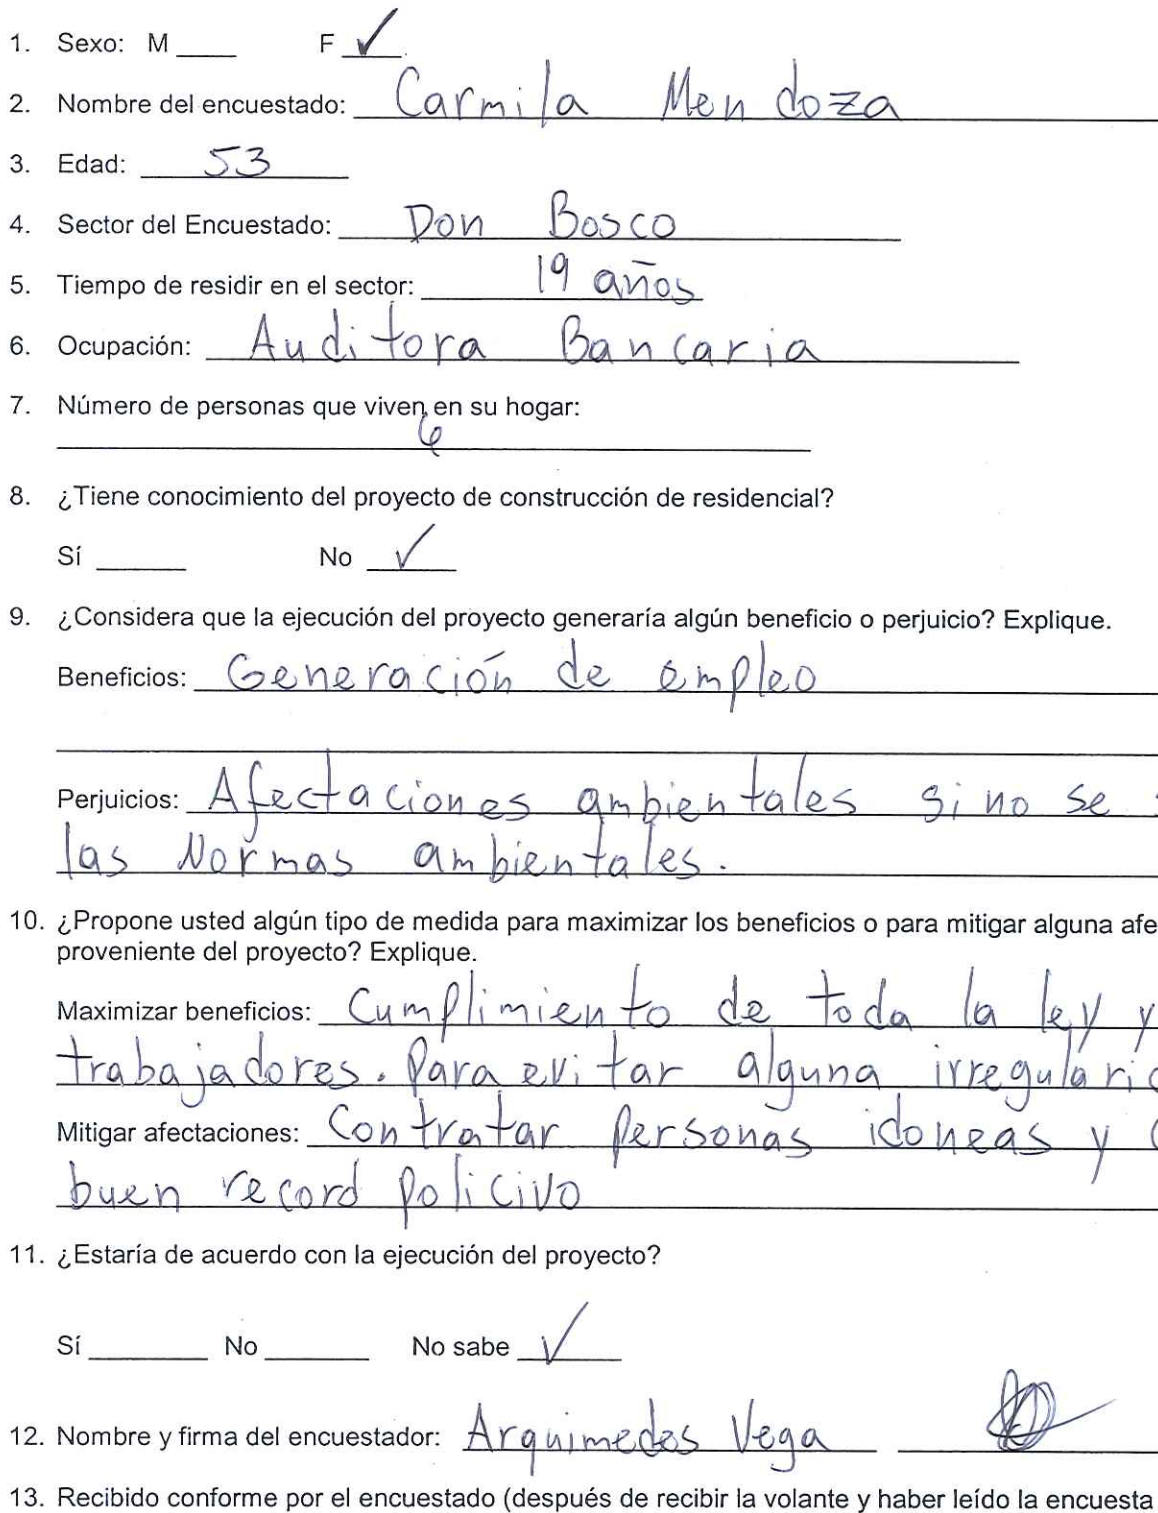 1. Sexo: M ____ F ✓
2. Nombre del encuestado: Carmila Mendoza
3. Edad: 53
4. Sector del Encuestado: Don Bosco
5. Tiempo de residir en el sector: 19 años
6. Ocupación: Auditora Bancaria
7. Número de personas que viven en su hogar:
6
8. ¿Tiene conocimiento del proyecto de construcción de residencial?
Sí ____ No ✓
9. ¿Considera que la ejecución del proyecto generaría algún beneficio o perjuicio? Explique.
Beneficios: Generación de empleo
Perjuicios: Afectaciones ambientales si no se
las Normas ambientales.
10. ¿Propone usted algún tipo de medida para maximizar los beneficios o para mitigar alguna afe
proveniente del proyecto? Explique.
Maximizar beneficios: Cumplimiento de toda la ley y
trabajadores. Para evitar alguna irregularic
Mitigar afectaciones: Contratar personas idoneas y
buen record policivo
11. ¿Estaría de acuerdo con la ejecución del proyecto?
Sí ____ No ____ No sabe ✓
12. Nombre y firma del encuestador: Arquimedes Vega
13. Recibido conforme por el encuestado (después de recibir la volante y haber leído la encuesta